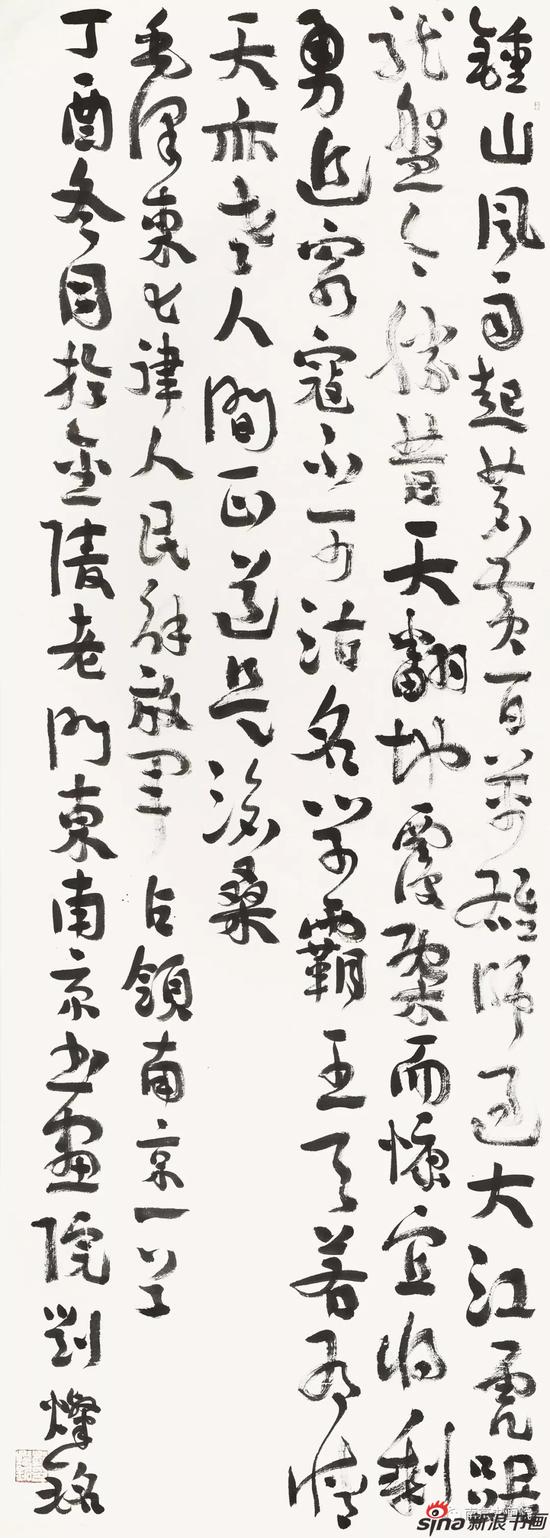 鍾山風雨起蒼黃百萬雄師過大江虎踞
龍盤今勝昔天翻地覆慨而慷宜將剩
勇追窮寇不可沽名學霸王天若有情
天亦老人間正道是滄桑
毛澤東七律人民解放軍占領南京一首
丁酉冬日於金陵老門東南京書畫院劉燦銘
sina新浪书画